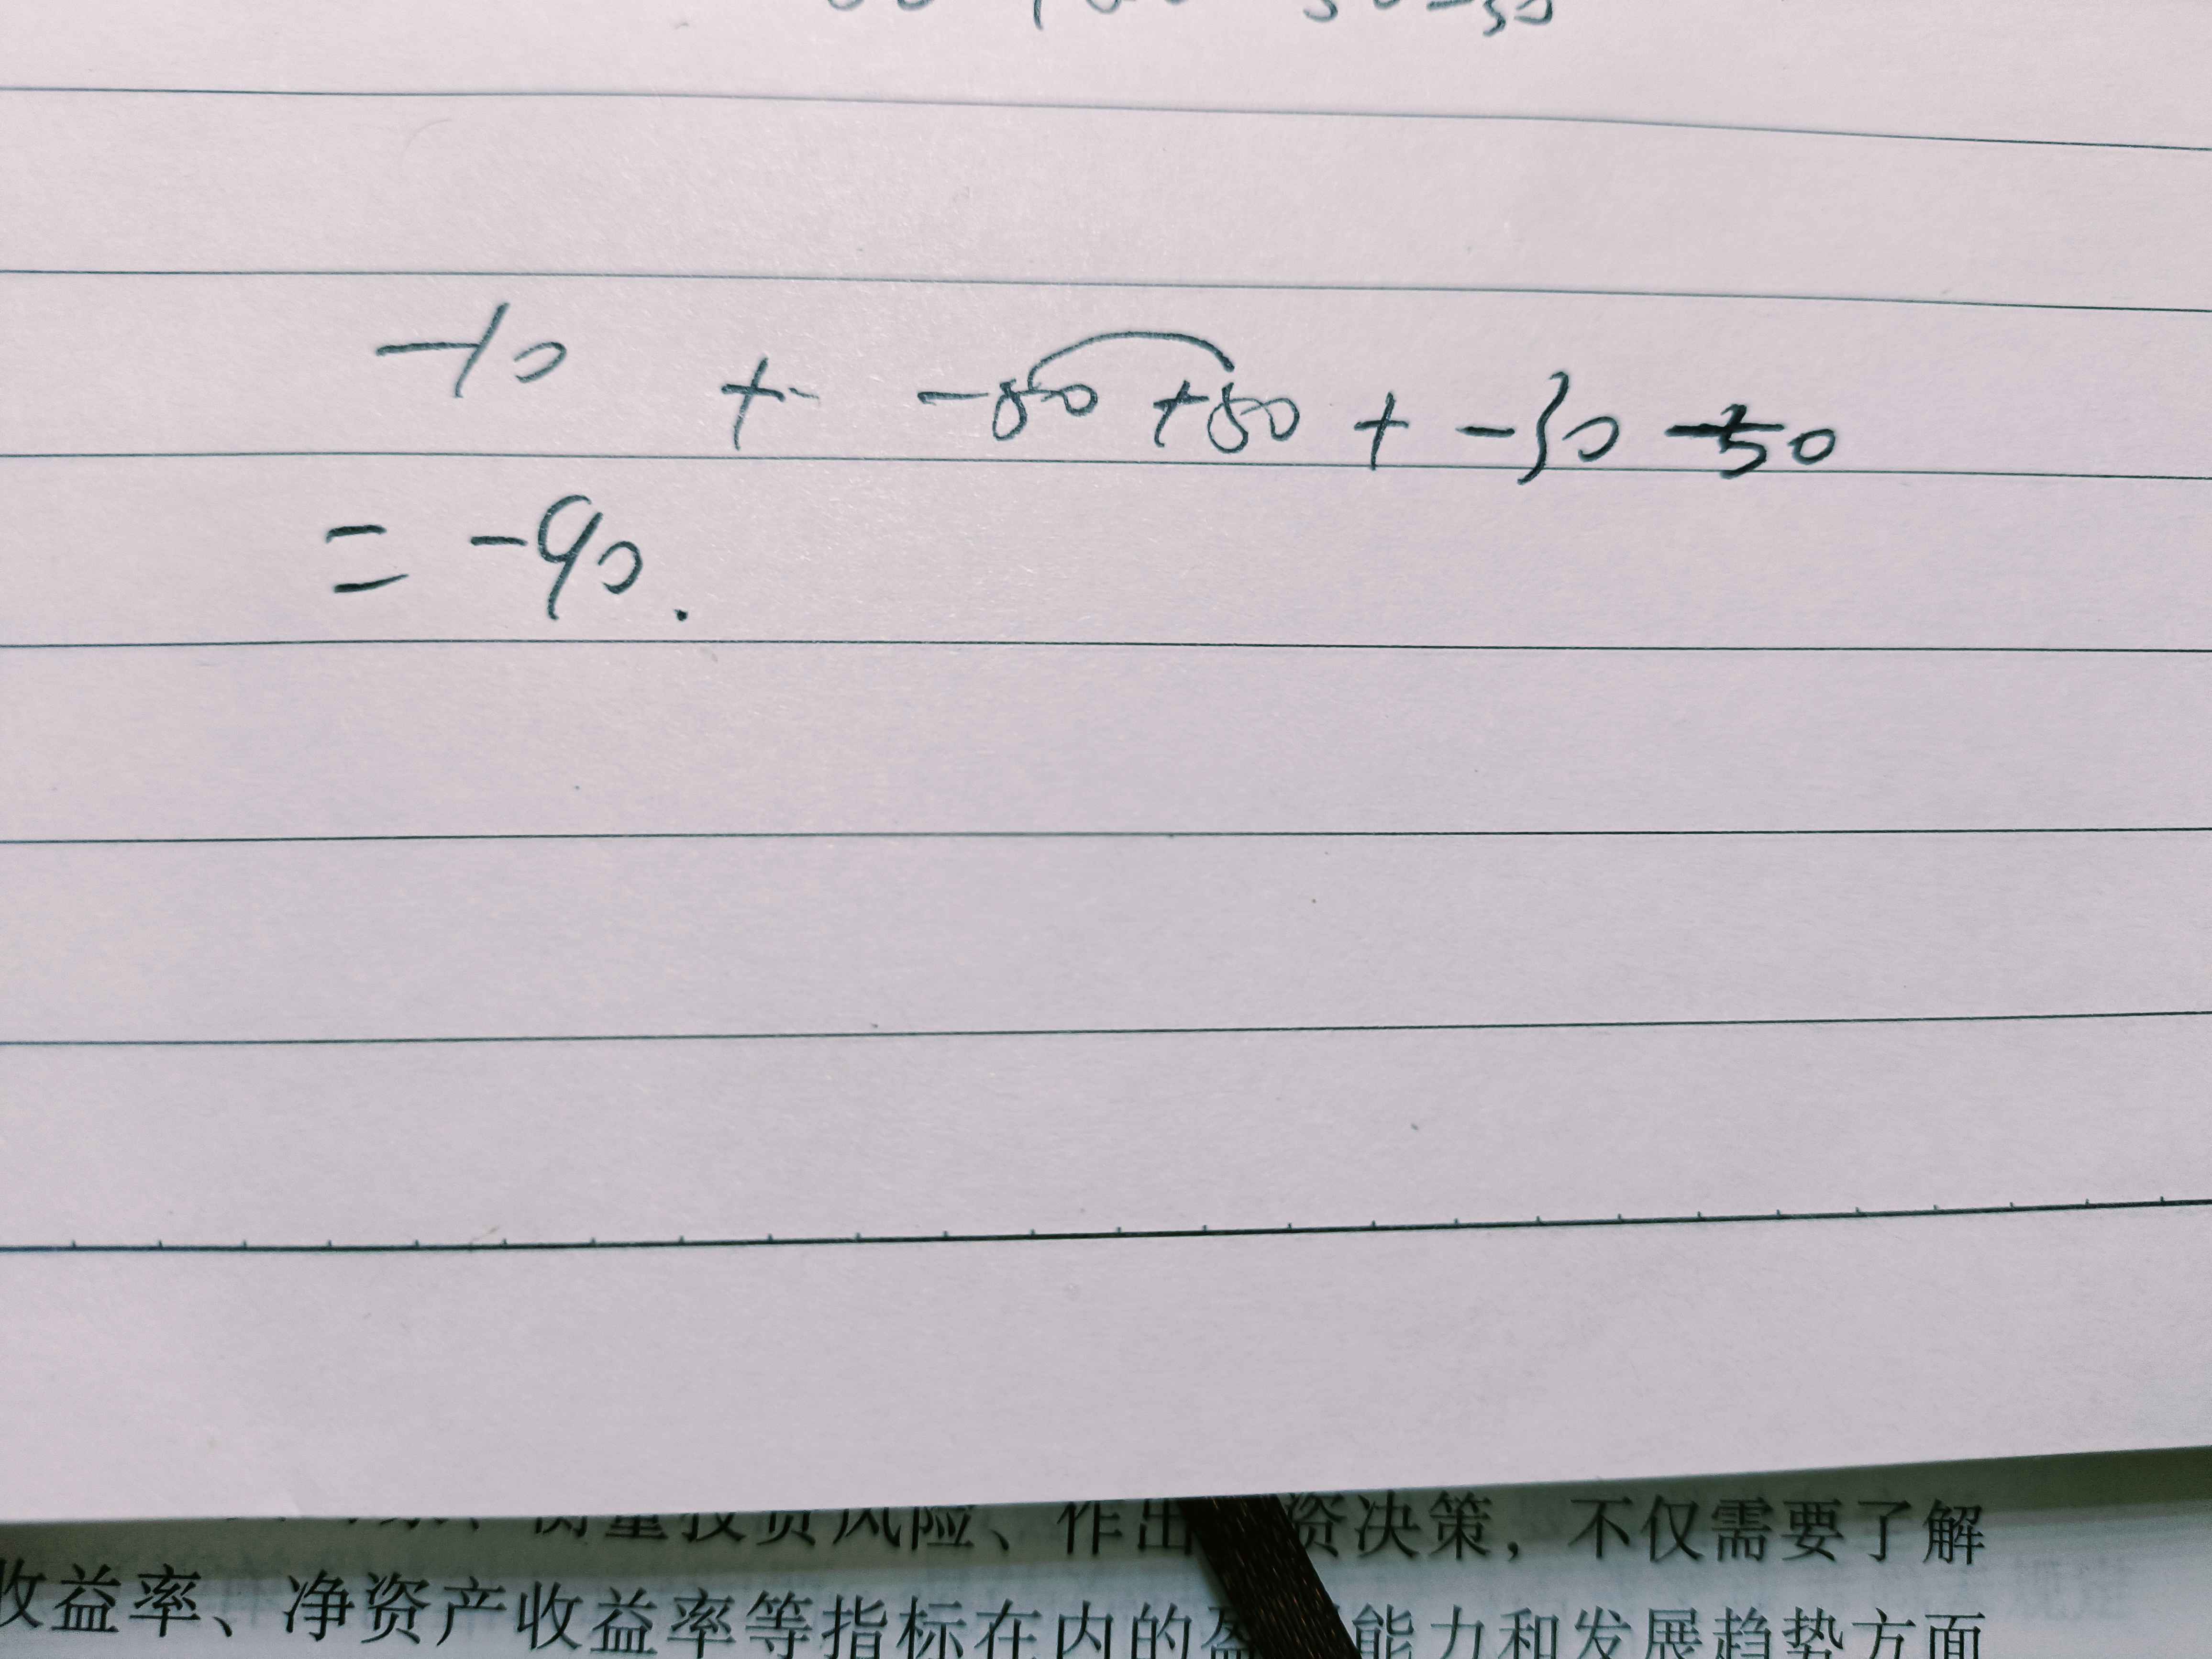 -10 + -80 +80 + -30 -50
= -90.
资决策，不仅需要了解
收益率、净资产收益率等指标在内的盈 能力和发展趋势方面